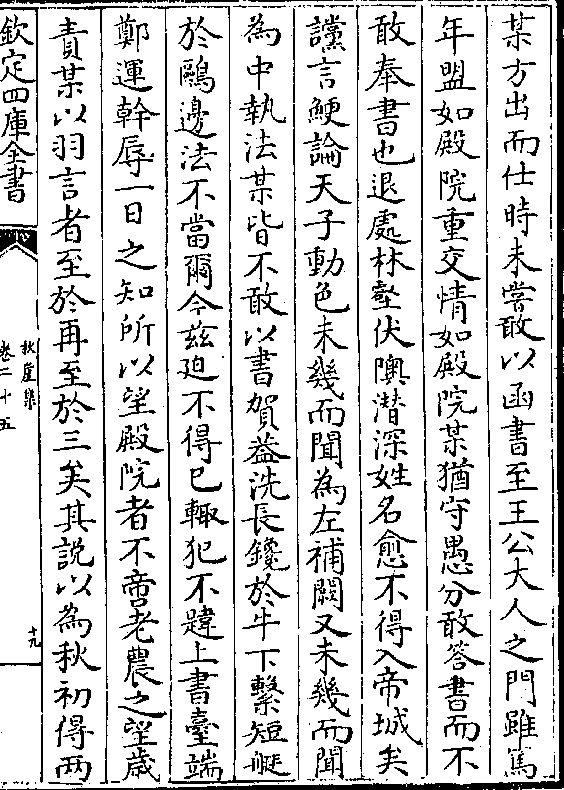 某方出而仕時未嘗敢以函書至王公大人之門雖篤
年盟如殿院重交情如殿院某猶守愚分敢答書而不
敢奉書也退處林壑伏隩潜深姓名愈不得入帝城矣
讜言鯁論天子動色未幾而聞為左補闕又未幾而聞
為中執法某皆不敢以書賀葢洗長鑱於牛下繫短艇
於鷗邊法不當爾今兹廹不得已輙犯不韙上書臺端
鄭運幹辱一日之知所以望殿院者不啻老農之望歳
責某以羽言者至於再至於三矣其說以為秋初得两
欽定四庫全書
秋崖集
卷二十五
十九